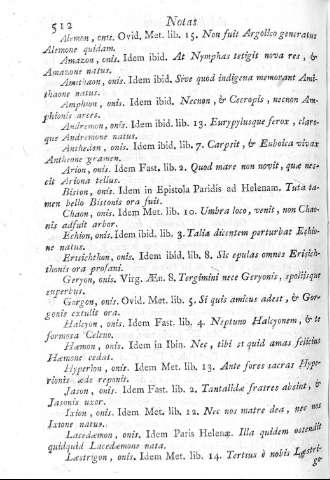 512 Notas
Alemon, onis. Ovid. Met. lib. 15. Non fuit Argolico generatus
Alemone quidam.
Amazon, onis. Idem ibid. At Nymphas tetigit nova res, &
Amazone natus.
Amithaon, onis. Idem ibid. Sive quod indigena memorant Ami-
thaone natus.
Amphion, onis. Idem ibid. Necnon, & Cecropis, necnon Am-
phionis arces.
Andremon, onis. Idem ibid. lib. 13. Eurypylusque ferox, clare-
que Andremone natus.
Anthedon, onis. Idem ibid. lib. 7. Carpsit, & Euboica vivax
Antheone gramen.
Arion, onis. Idem Fast. lib. 2. Quod mare non novit, quæ nes-
cit Ariona tellus.
Biston, onis. Idem in Epistola Paridis ad Helenam. Tuta ta-
men bello Bistonis ora fuit.
Chaon, onis. Idem Met. lib. 10. Umbra loco, venit, non Chao-
nis adfuit arbor.
Echion, onis. Idem ibid. lib. 3. Talia dicentem perturbat Echio-
ne natus.
Erisichthon, onis. Idem ibid. lib. 8. Sic epulas omnes Erisich-
thonis ora profani.
Geryon, onis. Virg. Æn. 8. Tergimini nece Geryonis, spoliisque
superbus.
Gorgon, onis. Ovid. Met. lib. 5. Si quis amicus adest, & Gor-
gonis extulit ora.
Halcyon, onis. Idem Fast. lib. 4. Neptuno Halcyonem, & te
formosa Celeno.
Hæmon, onis. Idem in Ibin. Nec, tibi si quid amas felicius
Hæmone cedat.
Hyperion, onis. Idem Met. lib. 13. Ante fores sacras Hype-
rionis æde reponit.
Jason, onis. Idem Fast. lib. 2. Tantalidæ fratres absint, &
Jasonis uxor.
Ixion, onis. Idem Met. lib. 12. Nec nos matre dea, nec nos
Ixione natus.
Lacedæmon, onis. Idem Paris Helenæ. Illa quidem ostendit
quidquid Lacedæmone nata.
Læstrigon, onis. Idem Met. lib. 14. Tertius è nobis Læstri-
go-